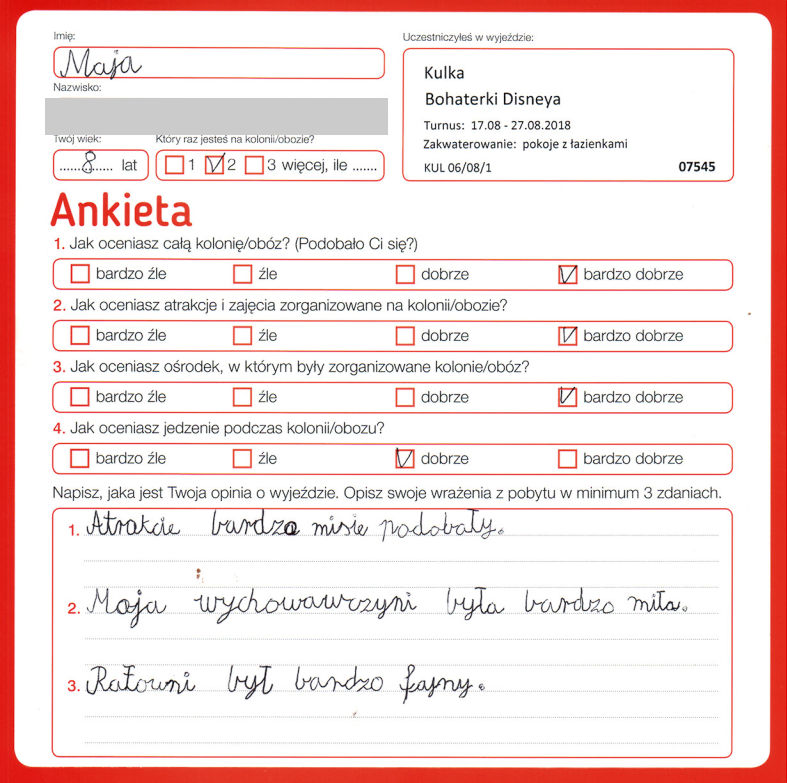 Imię:
Maja
Nazwisko:
Twój wiek:
Który raz jesteś na kolonii/obozie?
......8...... lat
1 2 3 więcej, ile .......
Uczestniczyłeś w wyjeździe:
Kulka
Bohaterki Disneya
Turnus: 17.08 - 27.08.2018
Zakwaterowanie: pokoje z łazienkami
KUL 06/08/1 07545
Ankieta
1. Jak oceniasz całą kolonię/obóz? (Podobało Ci się?)
bardzo źle źle dobrze bardzo dobrze
2. Jak oceniasz atrakcje i zajęcia zorganizowane na kolonii/obozie?
bardzo źle źle dobrze bardzo dobrze
3. Jak oceniasz ośrodek, w którym były zorganizowane kolonie/obóz?
bardzo źle źle dobrze bardzo dobrze
4. Jak oceniasz jedzenie podczas kolonii/obozu?
bardzo źle źle dobrze bardzo dobrze
Napisz, jaka jest Twoja opinia o wyjeździe. Opisz swoje wrażenia z pobytu w minimum 3 zdaniach.
1. Atrakcie bardzo misie podobały.
2. Moja wychowawczyni była bardzo miła.
3. Ratowni był bardzo fajny.